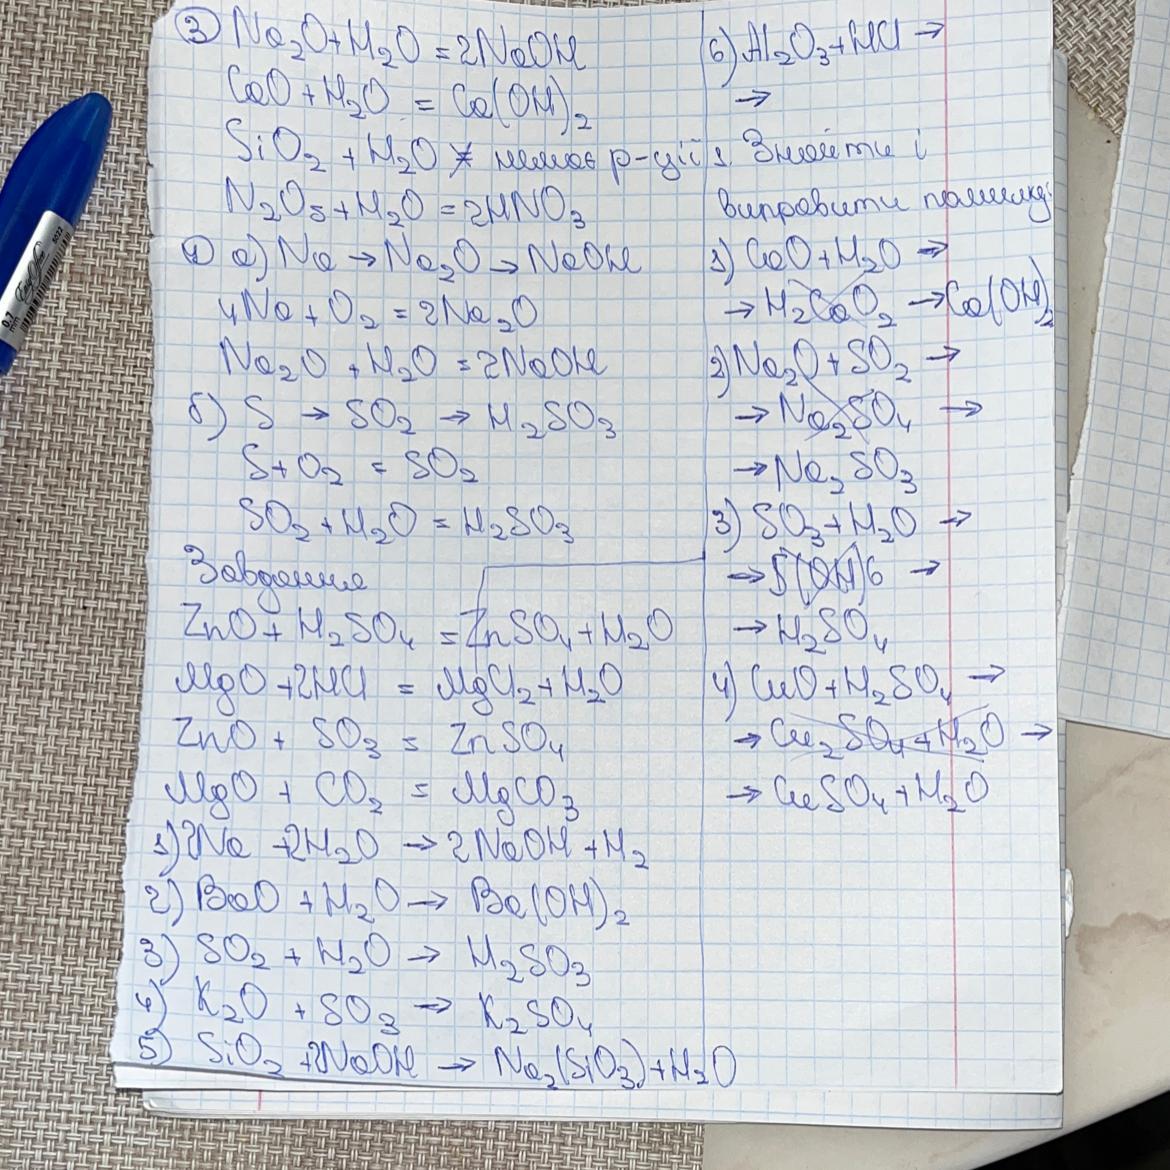 3 Na₂O+H₂O = 2NaOH
CaO+H₂O = Ca(OH)₂
SiO₂ + H₂O ≠ немає р-ції
N₂O₅+H₂O = 2HNO₃
1) а) Na → Na₂O → NaOH
4Na + O₂ = 2Na₂O
Na₂O + H₂O = 2NaOH
б) S → SO₂ → H₂SO₃
S+O₂ = SO₂
SO₂+H₂O = H₂SO₃
Завдання
ZnO + H₂SO₄ = ZnSO₄+H₂O
MgO +2HCl = MgCl₂+H₂O
ZnO + SO₃ = ZnSO₄
MgO + CO₂ = MgCO₃
1) 2Na +2H₂O → 2NaOH+H₂
2) BaO +H₂O → Ba(OH)₂
3) SO₂ + H₂O → H₂SO₃
4) K₂O + SO₃ → K₂SO₄
5) SiO₂ +2NaOH → Na₂(SiO₃)+H₂O
6) Al₂O₃+HCl →
→
1. Знайти і
виправити помилку:
1) CaO+H₂O →
→ H₂CaO₂ → Ca(OH)₂
2) Na₂O+SO₂ →
→ Na₂SO₄ →
→ Na₂SO₃
3) SO₃+H₂O →
→ S(OH)6 →
→ H₂SO₄
4) CuO+H₂SO₄ →
→ Cu₂SO₄+H₂O →
→ CuSO₄+H₂O
0.7